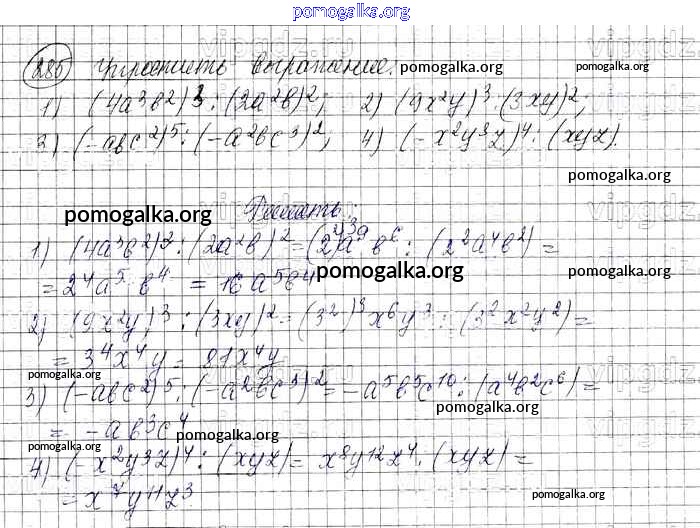 pomogalka.org
285 Упростить выражение. pomogalka.org
1) (4a³b²)³ : (2a²b)²; 2) (9x²y)³ : (3xy)²;
3) (-abc²)⁵ : (-a²bc³)²; 4) (-x²y³z)⁴ : (xyz).
pomogalka.org
Решать:
pomogalka.org
1) (4a³b²)³ : (2a²b)² = (2²)³a⁹b⁶ : (2²a⁴b²) =
= 2⁴a⁵b⁴ = 16a⁵b⁴ pomogalka.org pomogalka.org
2) (9x²y)³ : (3xy)² = (3²)³x⁶y³ : (3²x²y²) =
= 3⁴x⁴y = 81x⁴y
pomogalka.org pomogalka.org
3) (-abc²)⁵ : (-a²bc³)² = -a⁵b⁵c¹⁰ : (a⁴b²c⁶) =
pomogalka.org
= -ab³c⁴ pomogalka.org
pomogalka.org
4) (-x²y³z)⁴ : (xyz) = x⁸y¹²z⁴ : (xyz) =
= x⁷y¹¹z³ pomogalka.org